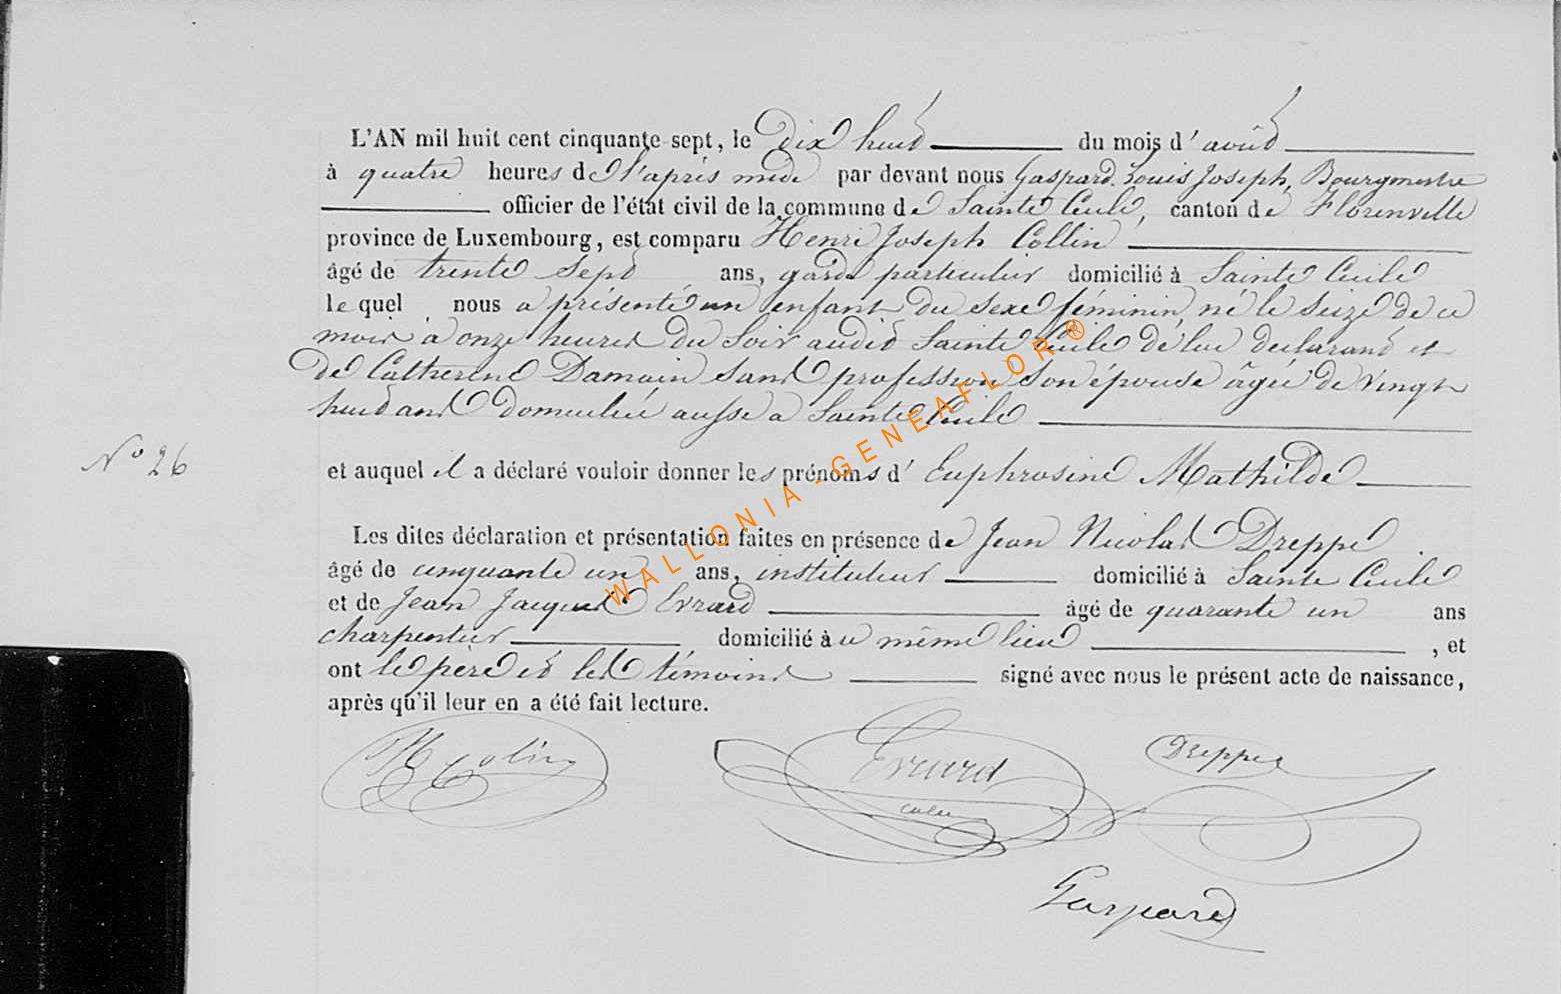 L'AN mil huit cent cinquante-sept, le dix huit du mois d'août
à quatre heures de l'après midi par devant nous Gaspard Louis Joseph, Bourgmestre
officier de l'état civil de la commune de Sainte Cécile, canton de Florenville
province de Luxembourg, est comparu Henri Joseph Collin
âgé de trente sept ans, garde particulier domicilié à Sainte Cécile
le quel nous a présenté un enfant du sexe féminin, né le seize de ce
mois à onze heures du soir audit Sainte Cécile de lui déclarant et
de Catherine Damain sans profession son épouse âgée de vingt
huit ans domiciliée aussi à Sainte Cécile
N° 26
et auquel il a déclaré vouloir donner les prénoms d'Euphrosine Mathilde
Les dites déclaration et présentation faites en présence de Jean Nicolas Dreppe
âgé de cinquante un ans, instituteur domicilié à Sainte Cécile
et de Jean Jacques Evrard âgé de quarante un ans
charpentier domicilié à ce même lieu, et
ont le père et les témoins signé avec nous le présent acte de naissance,
après qu'il leur en a été fait lecture.
H Colin Evrard Dreppe
Gaspard
WALLONIA-GENEAFLOR®